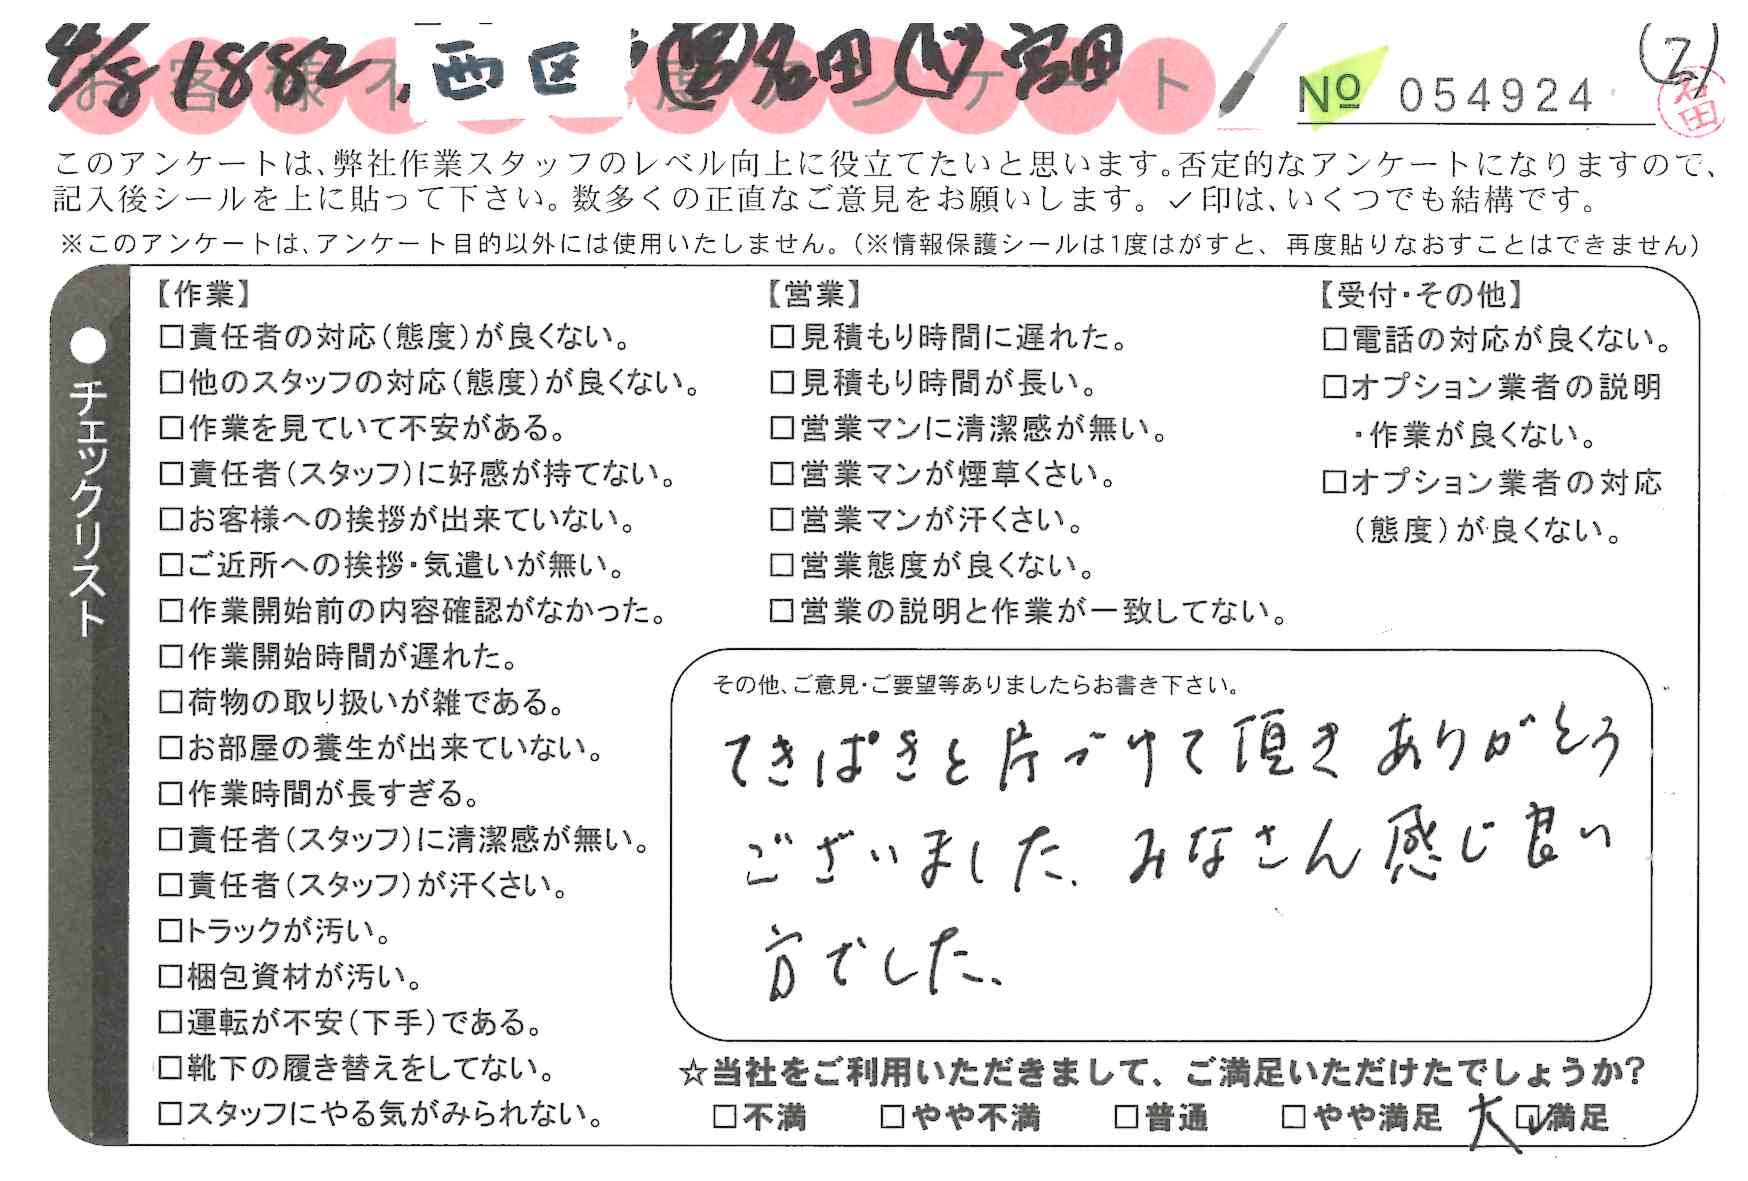 4/8 1882 西区 (営)名田 (作)宮田
お客様不 度アンケート
№ 054924
(2)
名田
このアンケートは、弊社作業スタッフのレベル向上に役立てたいと思います。否定的なアンケートになりますので、
記入後シールを上に貼って下さい。数多くの正直なご意見をお願いします。✓印は、いくつでも結構です。
※このアンケートは、アンケート目的以外には使用いたしません。(※情報保護シールは1度はがすと、再度貼りなおすことはできません)
●チェックリスト
【作業】
□責任者の対応(態度)が良くない。
□他のスタッフの対応(態度)が良くない。
□作業を見ていて不安がある。
□責任者(スタッフ)に好感が持てない。
□お客様への挨拶が出来ていない。
□ご近所への挨拶・気遣いが無い。
□作業開始前の内容確認がなかった。
□作業開始時間が遅れた。
□荷物の取り扱いが雑である。
□お部屋の養生が出来ていない。
□作業時間が長すぎる。
□責任者(スタッフ)に清潔感が無い。
□責任者(スタッフ)が汗くさい。
□トラックが汚い。
□梱包資材が汚い。
□運転が不安(下手)である。
□靴下の履き替えをしてない。
□スタッフにやる気がみられない。
【営業】
□見積もり時間に遅れた。
□見積もり時間が長い。
□営業マンに清潔感が無い。
□営業マンが煙草くさい。
□営業マンが汗くさい。
□営業態度が良くない。
□営業の説明と作業が一致してない。
【受付・その他】
□電話の対応が良くない。
□オプション業者の説明
・作業が良くない。
□オプション業者の対応
(態度)が良くない。
その他、ご意見・ご要望等ありましたらお書き下さい。
てきぱきと片づけて頂きありがとう
ございました、みなさん感じ良い
方でした、
☆当社をご利用いただきまして、ご満足いただけたでしょうか?
□不満 □やや不満 □普通 □やや満足 大☑満足